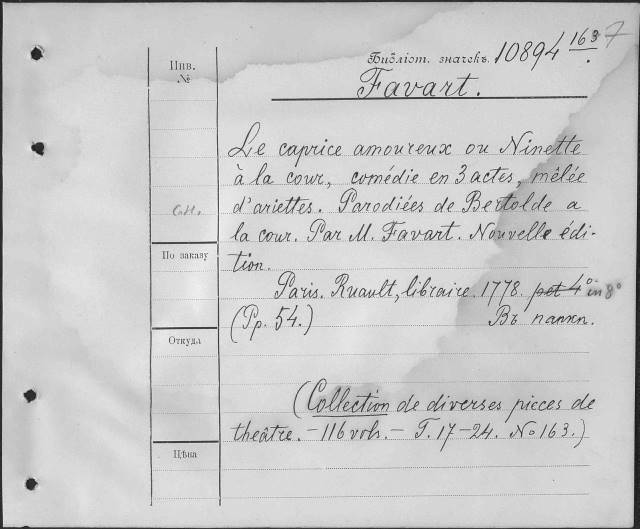 Инв. №
Библіот. значекъ. 10894 163 7
Favart.
Le caprice amoureux ou Ninette
à la cour, comédie en 3 actes, mêlée
d'ariettes. Parodiées de Bertolde a
la cour. Par M. Favart. Nouvelle édi-
tion.
Paris. Ruault, libraire. 1778. pet 4° in 8°
(Pp. 54.) Въ папкѣ.
(Collection de diverses pieces de
theâtre. – 116 vols. – T. 17–24. No 163.)
По заказу
Откуда
Цѣна